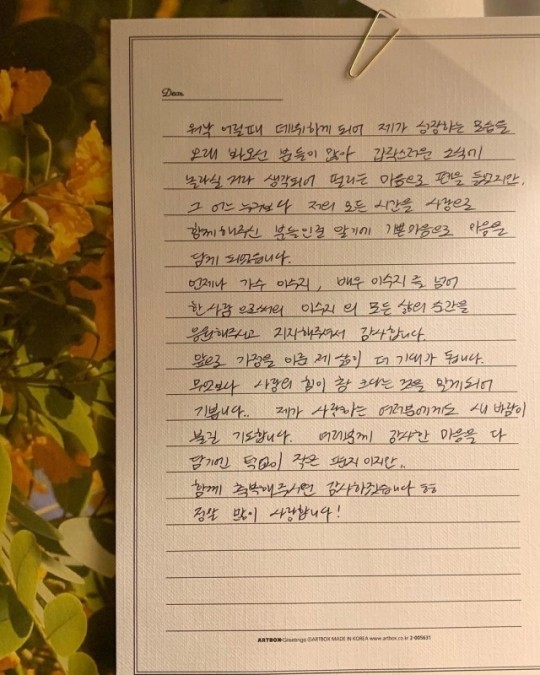 Dear.
워낙 어릴때 데뷔하게 되어 제가 성장하는 모습들
오래 봐오신 분들이 많아 갑작스러운 소식에
놀라실 거라 생각되어 떨리는 마음으로 펜을 들었지만,
그 어느 누구보다 저의 모든 시간을 사랑으로
함께해주신 분들인걸 알기에 기쁜마음으로 마음을
담게 되었습니다.
언제나 가수 이수지, 배우 이수지를 넘어
한사람 으로써의 이수지의 모든 삶의 순간을
응원해주시고 지지해주셔서 감사합니다.
앞으로 가정을 이룬 제 삶이 더 기대가 됩니다.
무엇보다 사랑의 힘이 참 크다는 것을 알게되어
기쁩니다.. 제가 사랑하는 여러분에게도 새 바람이
불길 기도합니다. 여러분께 감사한 마음을 다
담기엔 턱없이 작은 편지이지만..
함께 축복해주시면 감사하겠습니다 ㅎㅎ
정말 많이 사랑합니다!
ARTBOX Greetings ©ARTBOX MADE IN KOREA www.artbox.co.kr 2-005631